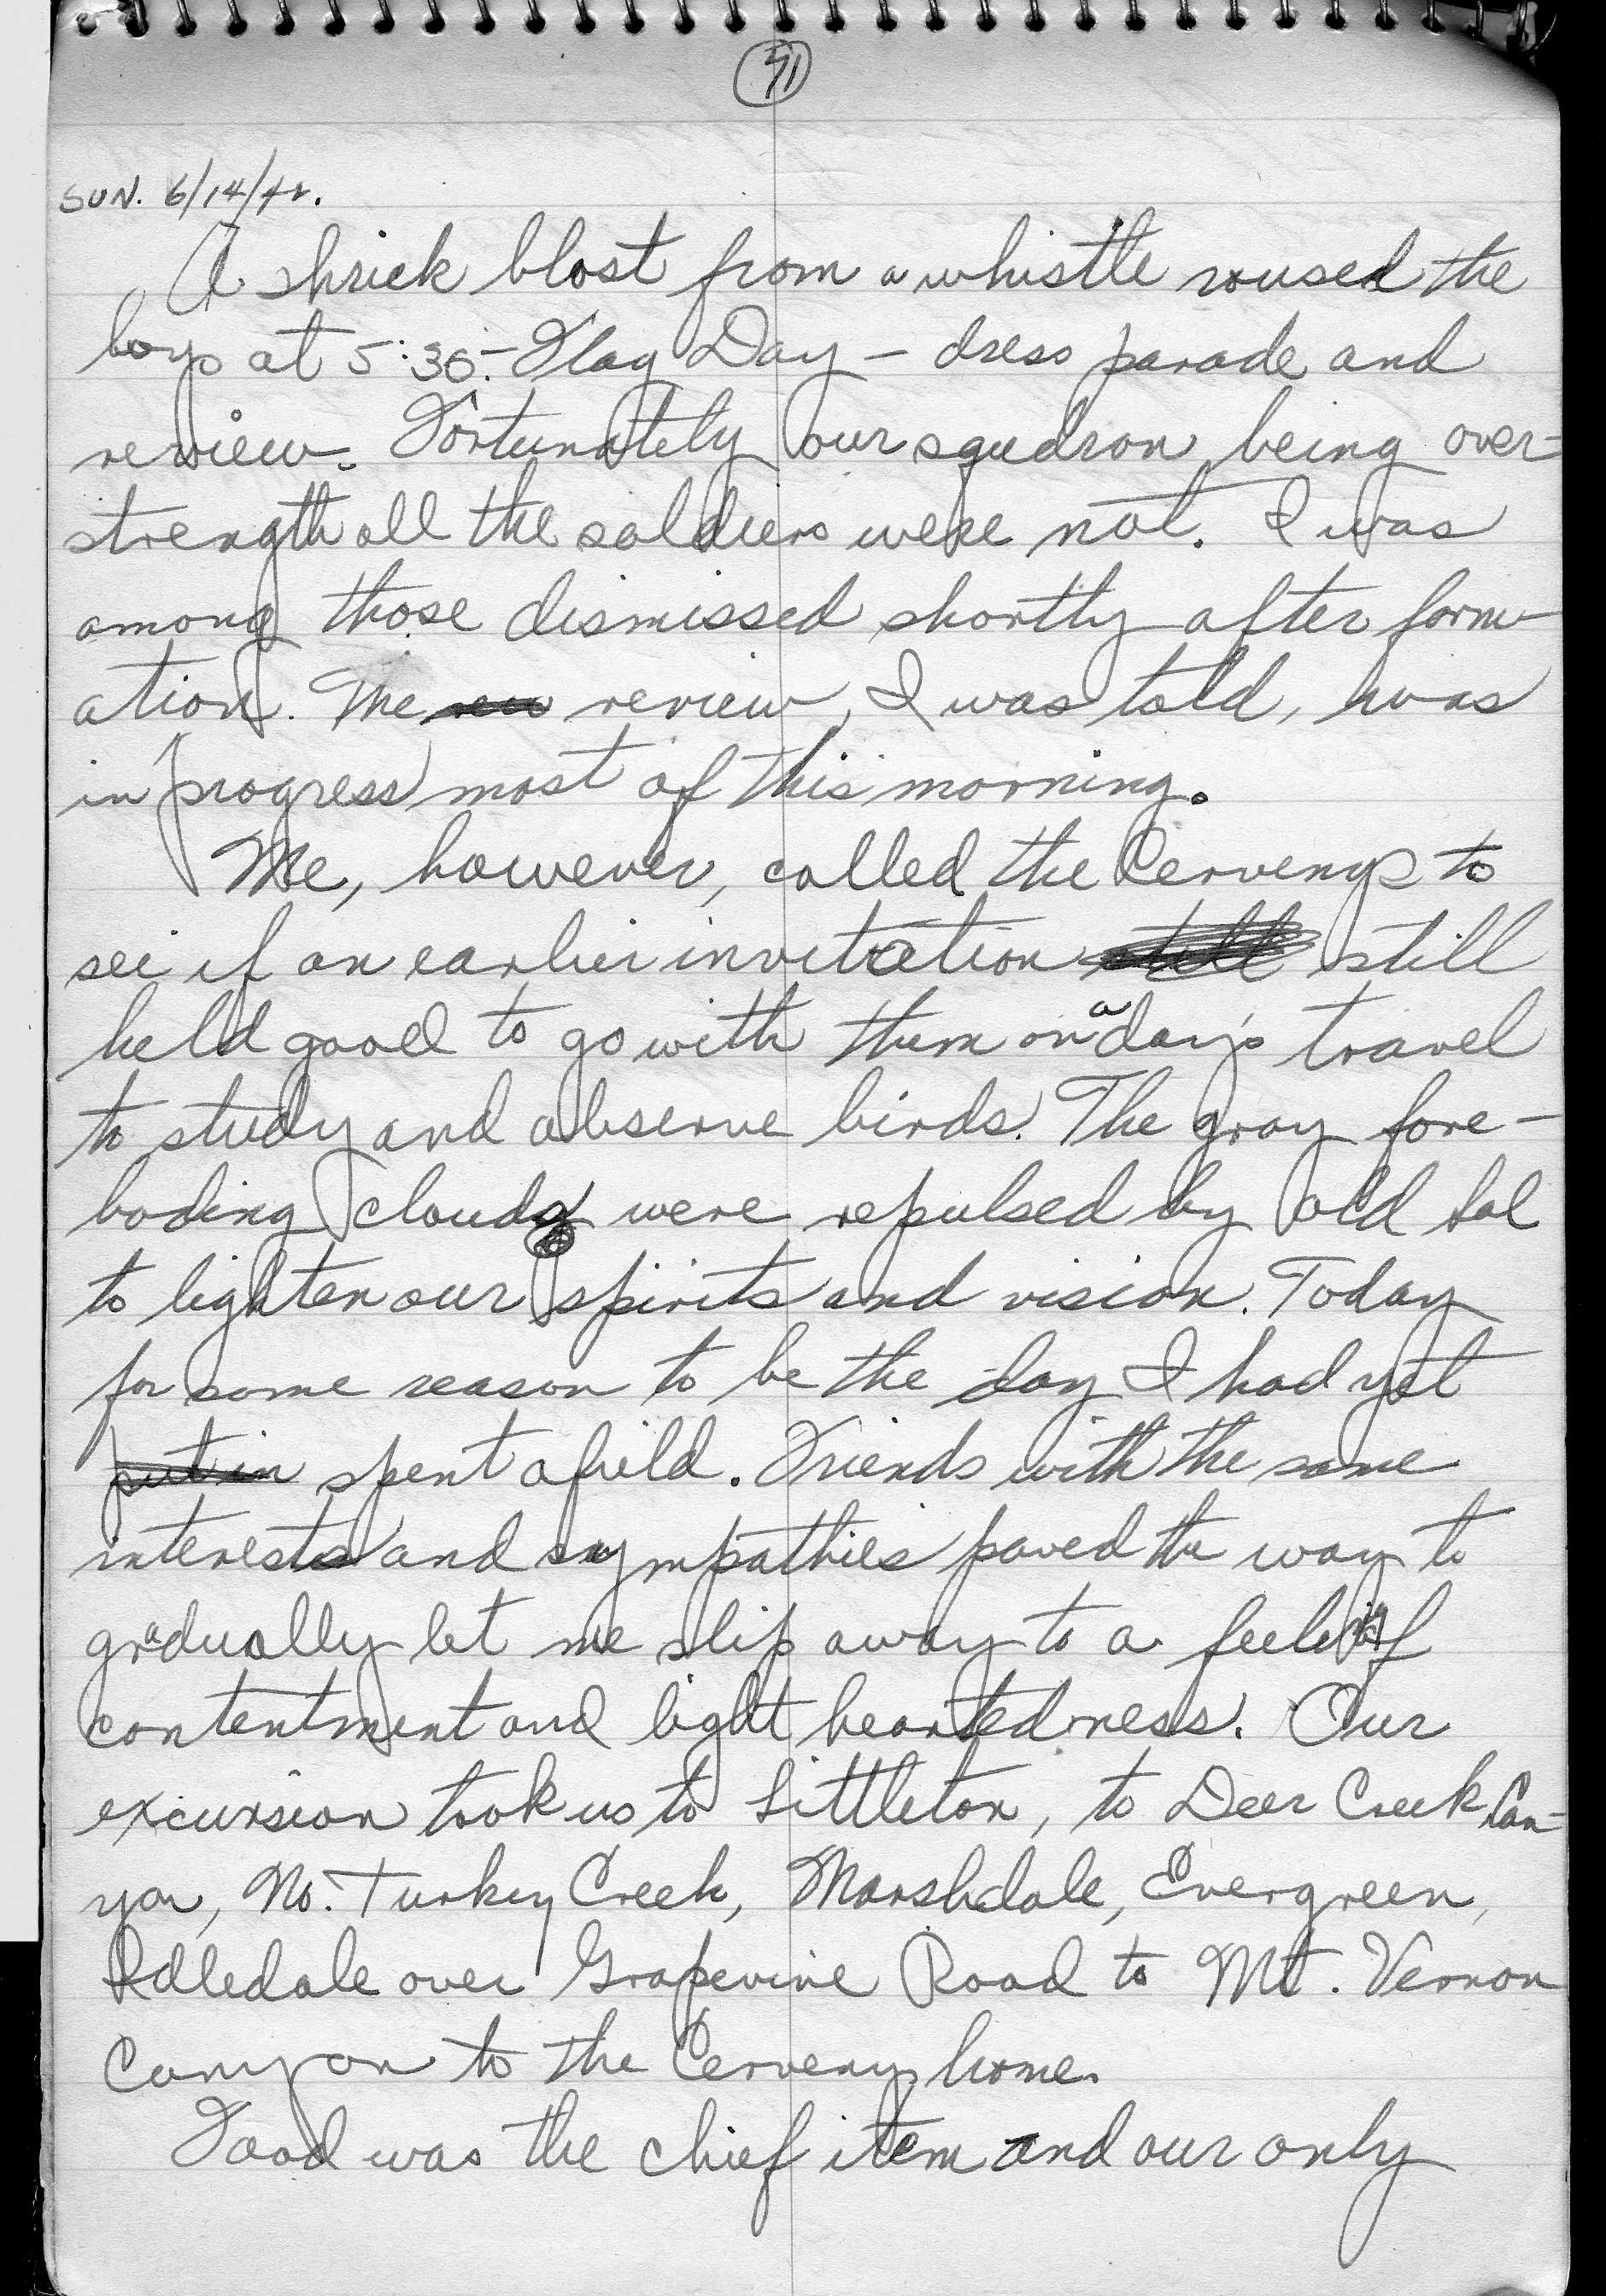 51
SUN. 6/14/42.
A shriek blast from a whistle roused the
boys at 5:30. - Flag Day - dress parade and
review. Fortunately our squdron being over-
strength all the soldiers were not. I was
among those dismissed shortly after form-
ation. The review, I was told, was
in progress most of this morning.
Me, however, called the Cervenys to
see if an earlier invitation still
held good to go with them on a day's travel
to study and observe birds. The gray fore-
boding clouds were repulsed by old Sol
to lighten our spirits and vision. Today
for some reason to be the day I had yet
put in spent afield. Friends with the same
interests and sympathies paved the way to
gradually let me slip away to a feeling of
contentment and light heartedness. Our
excursion took us to Littleton, to Deer Creek Can-
yon, No. Turkey Creek, Marshdale, Evergreen,
Idledale over Grapevine Road to Mt. Vernon
Canyon to the Cerveny home.
Food was the chief item and our only